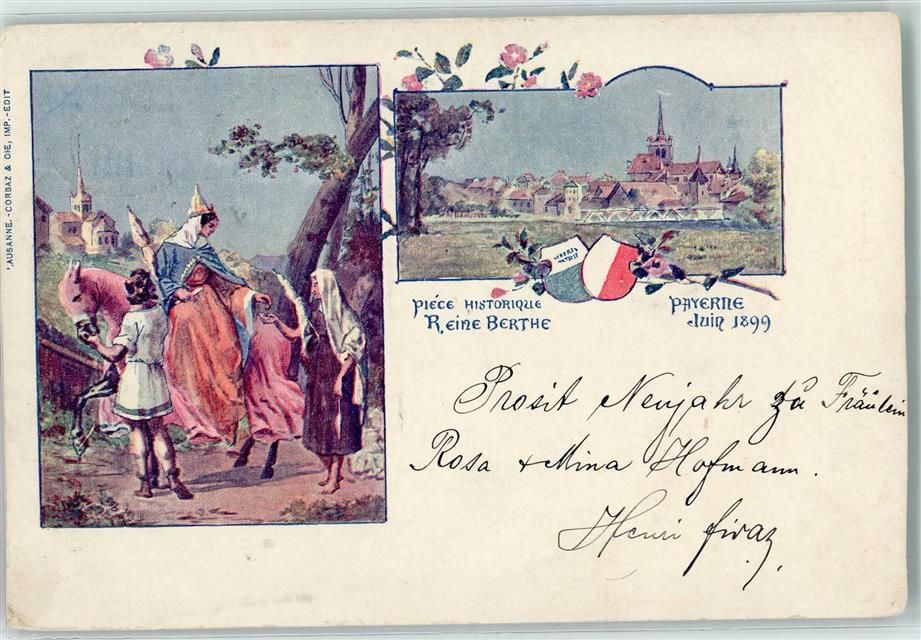 LAUSANNE.-CORBAZ & CIE, IMP.-EDIT
PIÉCE HISTORIQUE
REINE BERTHE
LIBERTÉ
PATRIE
PAYERNE
JUIN 1899
Prosit Neujahr zu Fräulein
Rosa + Mina Hofmann.
Henri